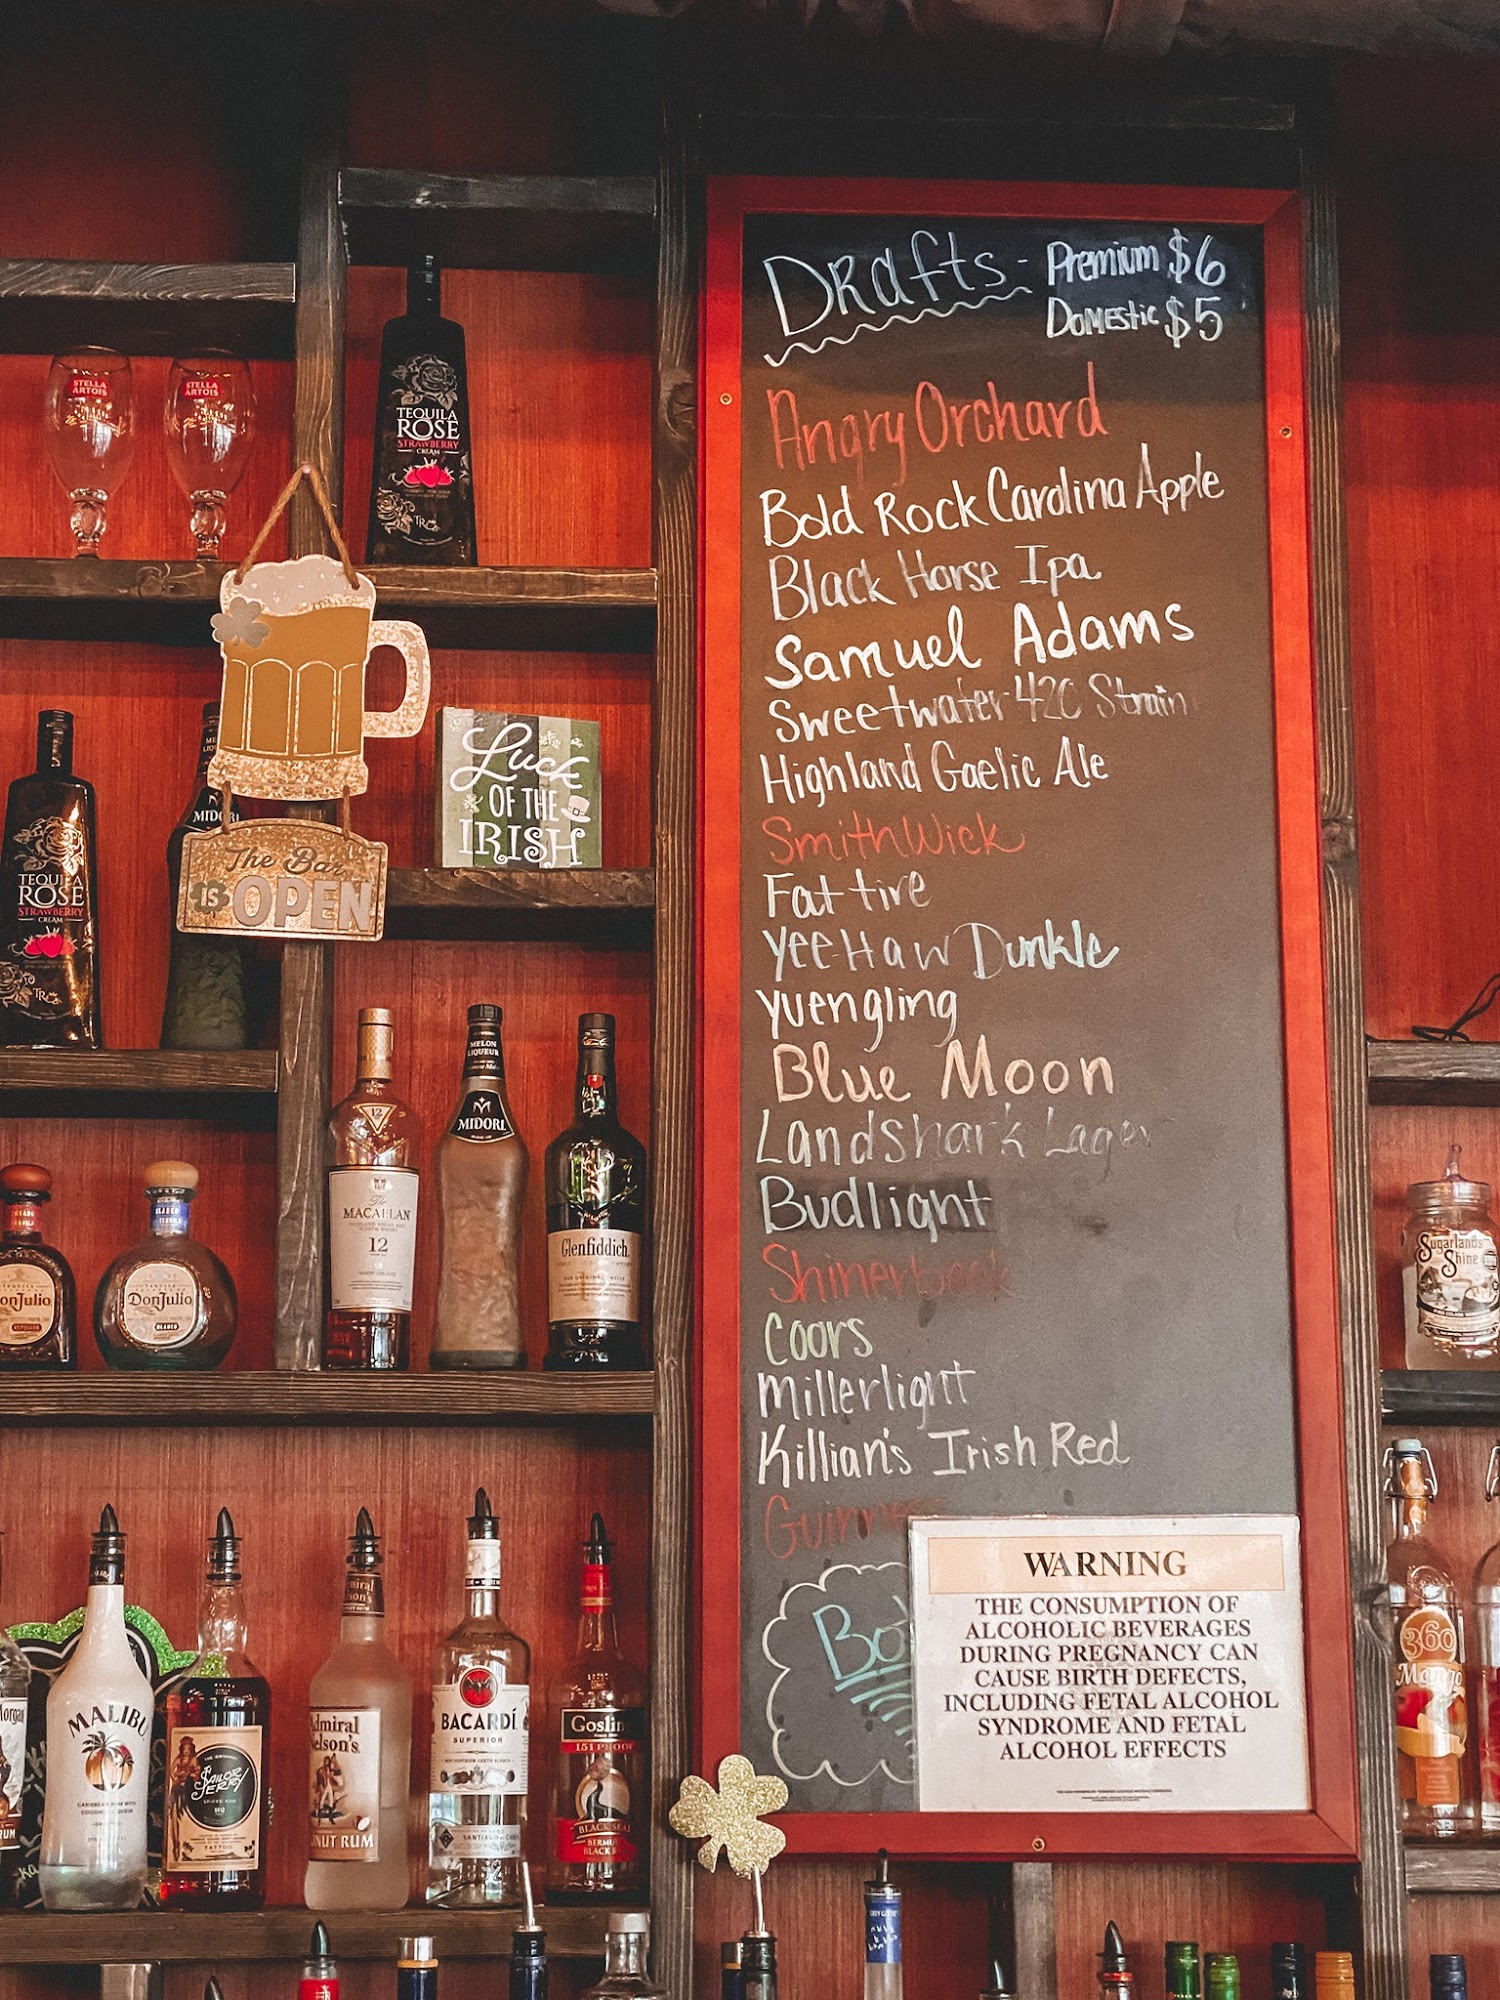 Drafts - Premium $6
Domestic $5
Angry Orchard
Bold Rock Carolina Apple
Black Horse Ipa
Samuel Adams
Sweetwater 420 Strain
Highland Gaelic Ale
Smithwick
Fat tire
Yee-Haw Dunkle
Yuengling
Blue Moon
Landshark Lager
Budlight
Shinerbock
Coors
Millerlight
Killian's Irish Red
Guinness
Bo
WARNING
THE CONSUMPTION OF
ALCOHOLIC BEVERAGES
DURING PREGNANCY CAN
CAUSE BIRTH DEFECTS,
INCLUDING FETAL ALCOHOL
SYNDROME AND FETAL
ALCOHOL EFFECTS
STELLA
ARTOIS
STELLA
ARTOIS
TEQUILA
ROSE
STRAWBERRY
CREAM
TR
Luck
OF THE
IRISH
The Bar
IS OPEN
MIDORI
TEQUILA
ROSE
STRAWBERRY
CREAM
TR
onJulio
DonJulio
BLANCO
12
The
MACALLAN
12
MELON
LIQUEUR
MIDORI
Glenfiddich
Sugarlands
Shine
Morgan
RUM
MALIBU
SAILOR
JERRY
Admiral
Nelson's
NUT RUM
BACARDÍ
SUPERIOR
Goslin
151 PROOF
BLACK SEAL
BERMU
BLACK R
360
Mango